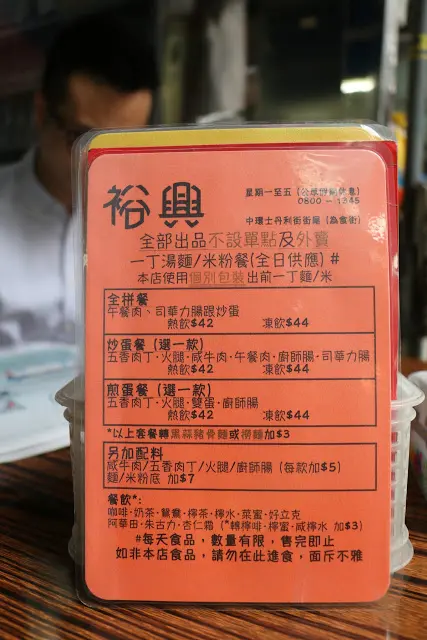 裕興
星期一至五 (公眾假期休息)
0800 - 1345
中環士丹利街街尾 (為食街)
全部出品不設單點及外賣
一丁湯麵/米粉餐(全日供應) #
本店使用個別包裝出前一丁麵/米
全拼餐
午餐肉、司華力腸跟炒蛋
熱飲$42 凍飲$44
炒蛋餐 (選一款)
五香肉丁·火腿·咸牛肉·午餐肉·廚師腸·司華力腸
熱飲$42 凍飲$44
煎蛋餐 (選一款)
五香肉丁·火腿·雙蛋·廚師腸
熱飲$42 凍飲$44
*以上套餐轉黑蒜豬骨麵或撈麵加$3
另加配料
咸牛肉/五香肉丁/火腿/廚師腸 (每款加$5)
麵/米粉底 加$7
餐飲*:
咖啡·奶茶·鴛鴦·檸茶·檸水·菜蜜·好立克
阿華田·朱古力·杏仁霜 (*轉檸啡·檸蜜·咸檸水 加$3)
#每天食品，數量有限，售完即止
如非本店食品，請勿在此進食，面斥不雅